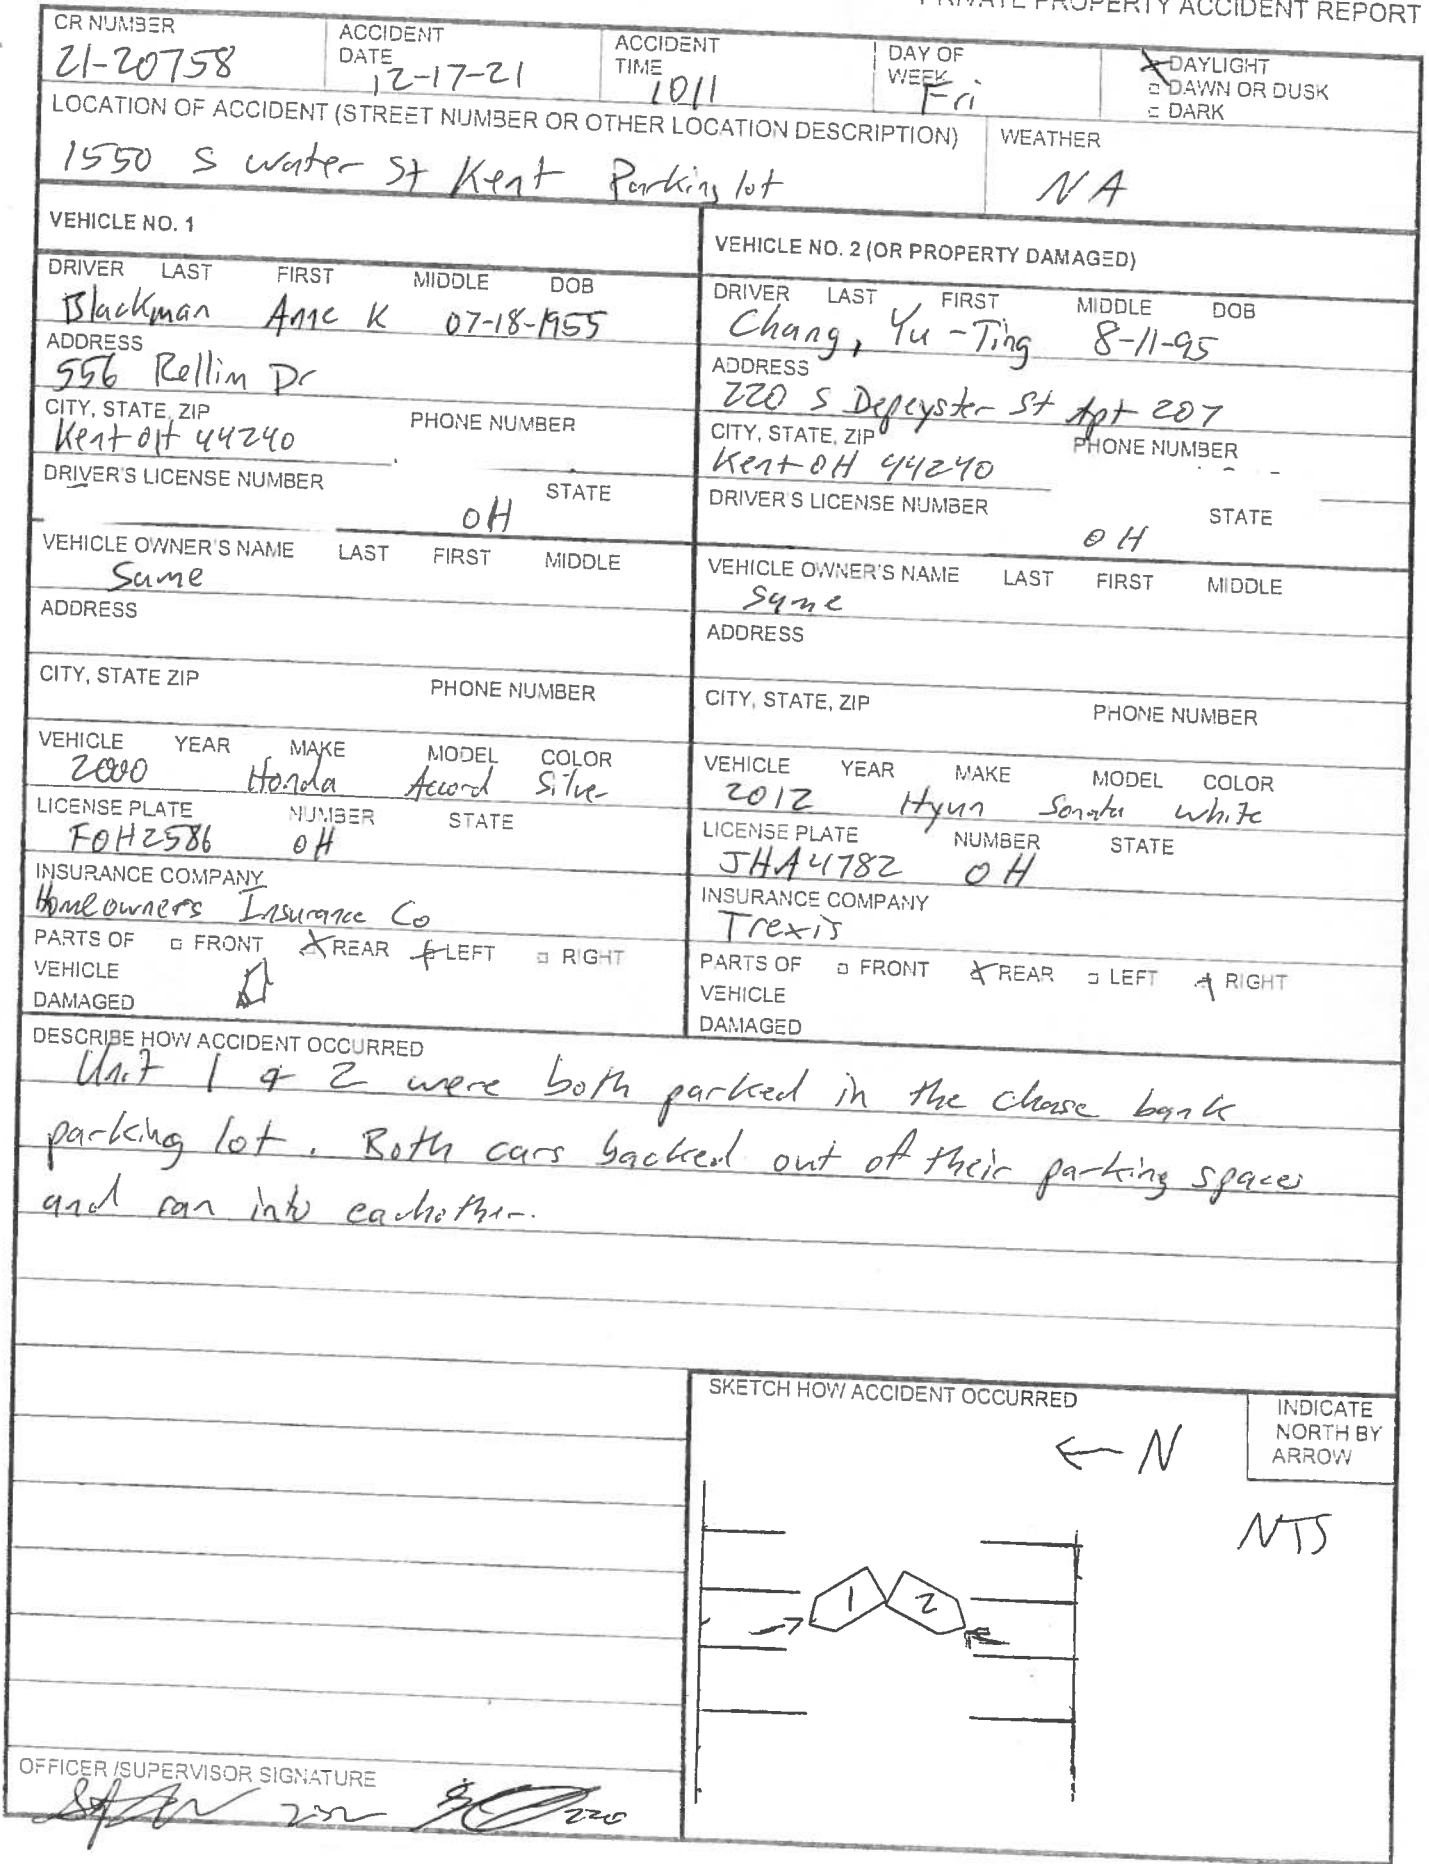 PRIVATE PROPERTY ACCIDENT REPORT
CR NUMBER ACCIDENT DATE ACCIDENT TIME DAY OF WEEK DAYLIGHT
21-20758 12-17-21 1011 Fri DAWN OR DUSK
DARK
LOCATION OF ACCIDENT (STREET NUMBER OR OTHER LOCATION DESCRIPTION) WEATHER
1550 S Water St Kent Parking lot NA
VEHICLE NO. 1
DRIVER LAST FIRST MIDDLE DOB
Blackman Anne K 07-18-1955
ADDRESS
556 Rellim Dr
CITY, STATE, ZIP PHONE NUMBER
Kent OH 44240
DRIVER'S LICENSE NUMBER STATE
OH
VEHICLE OWNER'S NAME LAST FIRST MIDDLE
Same
ADDRESS
CITY, STATE ZIP PHONE NUMBER
VEHICLE YEAR MAKE MODEL COLOR
2000 Honda Accord Silver
LICENSE PLATE NUMBER STATE
FOH2586 OH
INSURANCE COMPANY
Homeowners Insurance Co
PARTS OF FRONT REAR LEFT RIGHT
VEHICLE
DAMAGED
VEHICLE NO. 2 (OR PROPERTY DAMAGED)
DRIVER LAST FIRST MIDDLE DOB
Chang, Yu-Ting 8-11-95
ADDRESS
220 S Depeyster St Apt 207
CITY, STATE, ZIP PHONE NUMBER
Kent OH 44240
DRIVER'S LICENSE NUMBER STATE
OH
VEHICLE OWNER'S NAME LAST FIRST MIDDLE
Same
ADDRESS
CITY, STATE, ZIP PHONE NUMBER
VEHICLE YEAR MAKE MODEL COLOR
2012 Hyun Sonata White
LICENSE PLATE NUMBER STATE
JHA4782 OH
INSURANCE COMPANY
Trexis
PARTS OF FRONT REAR LEFT RIGHT
VEHICLE
DAMAGED
DESCRIBE HOW ACCIDENT OCCURRED
Unit 1 & 2 were both parked in the chase bank
parking lot. Both cars backed out of their parking spaces
and ran into eachother.
SKETCH HOW ACCIDENT OCCURRED
INDICATE
NORTH BY
ARROW
N
NTS
1 2
OFFICER /SUPERVISOR SIGNATURE
220